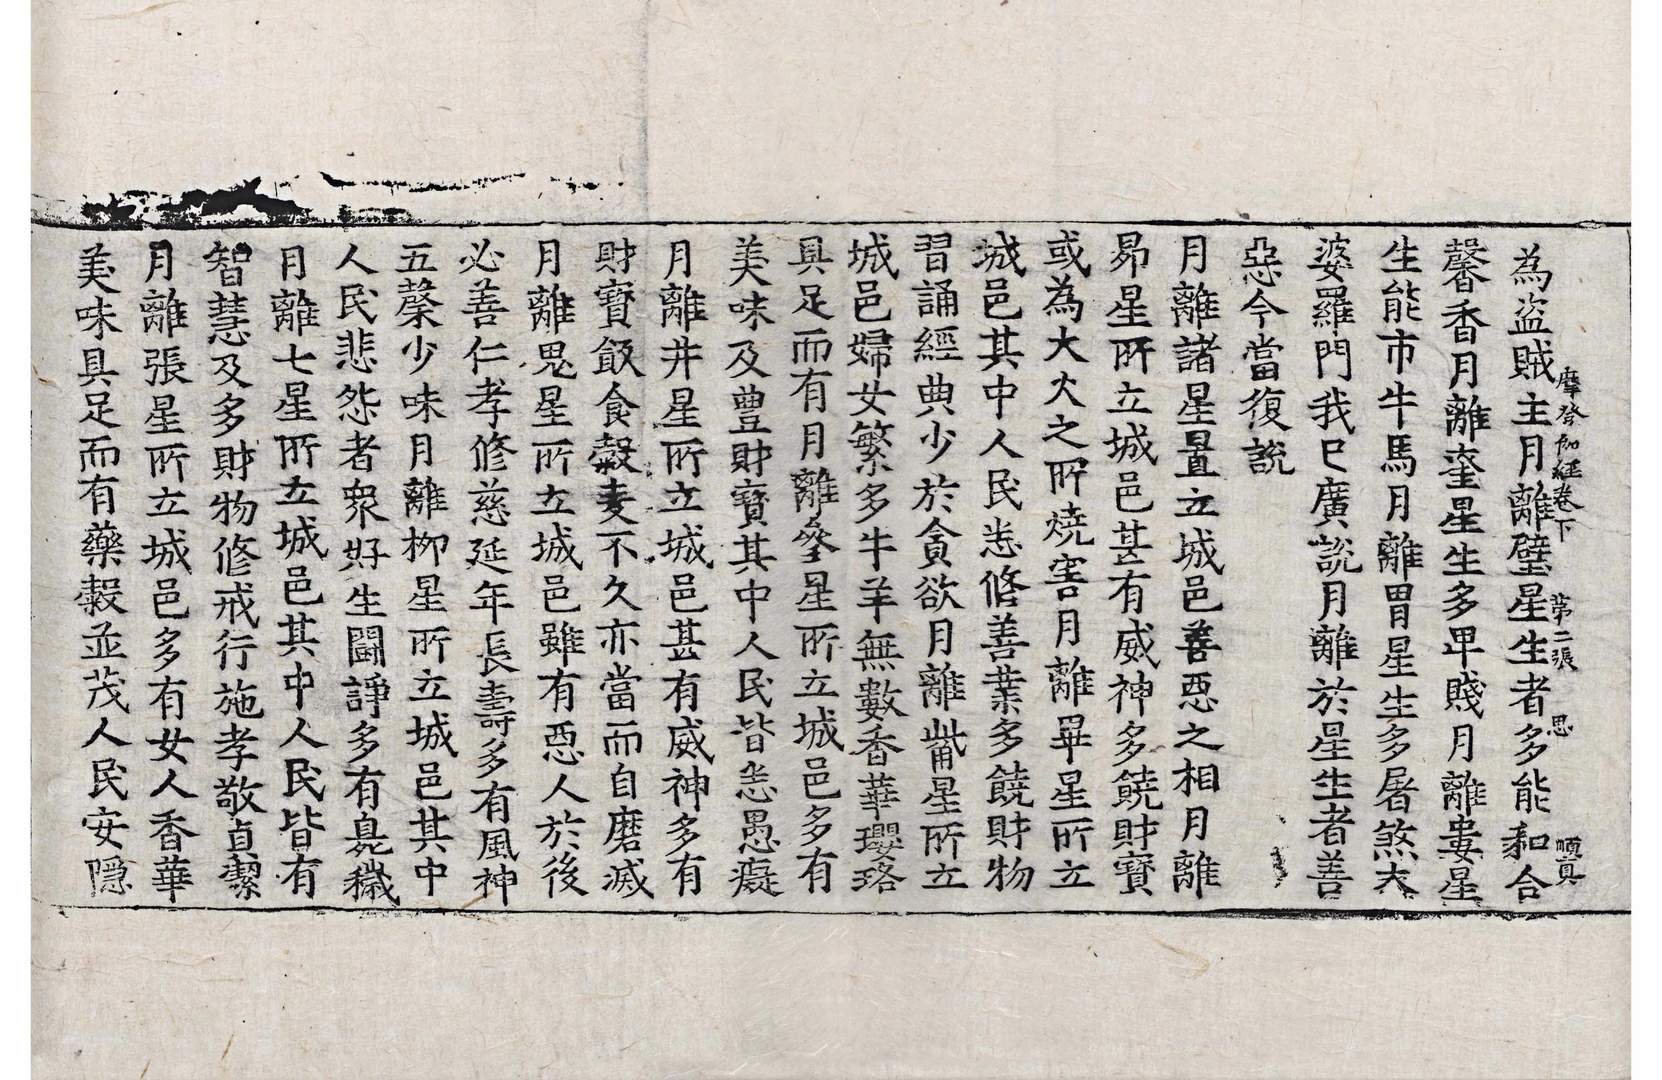 摩登伽經卷下 第二張 思 順真
為盗賊主月離壁星生者多能和合
馨香月離奎星生多卑賤月離婁星
生能市牛馬月離胃星生多屠煞夫
婆羅門我已廣說月離於星生者善
惡今當復說
月離諸星置立城邑善惡之相月離
昴星所立城邑甚有威神多饒財寶
或為大火之所燒害月離畢星所立
城邑其中人民悉修善業多饒財物
習誦經典少於貪欲月離觜星所立
城邑婦女繁多牛羊無數香華瓔珞
具足而有月離參星所立城邑多有
美味及豊財寶其中人民皆悉愚癡
月離井星所立城邑甚有威神多有
財寶飲食穀麦不久亦當而自磨滅
月離鬼星所立城邑雖有惡人於後
必善仁孝修慈延年長壽多有風神
五藥少味月離柳星所立城邑其中
人民悲怨者衆好生鬪諍多有臭穢
月離七星所立城邑其中人民皆有
智慧及多財物修戒行施孝敬貞潔
月離張星所立城邑多有女人香華
美味具足而有藥穀並茂人民安隱